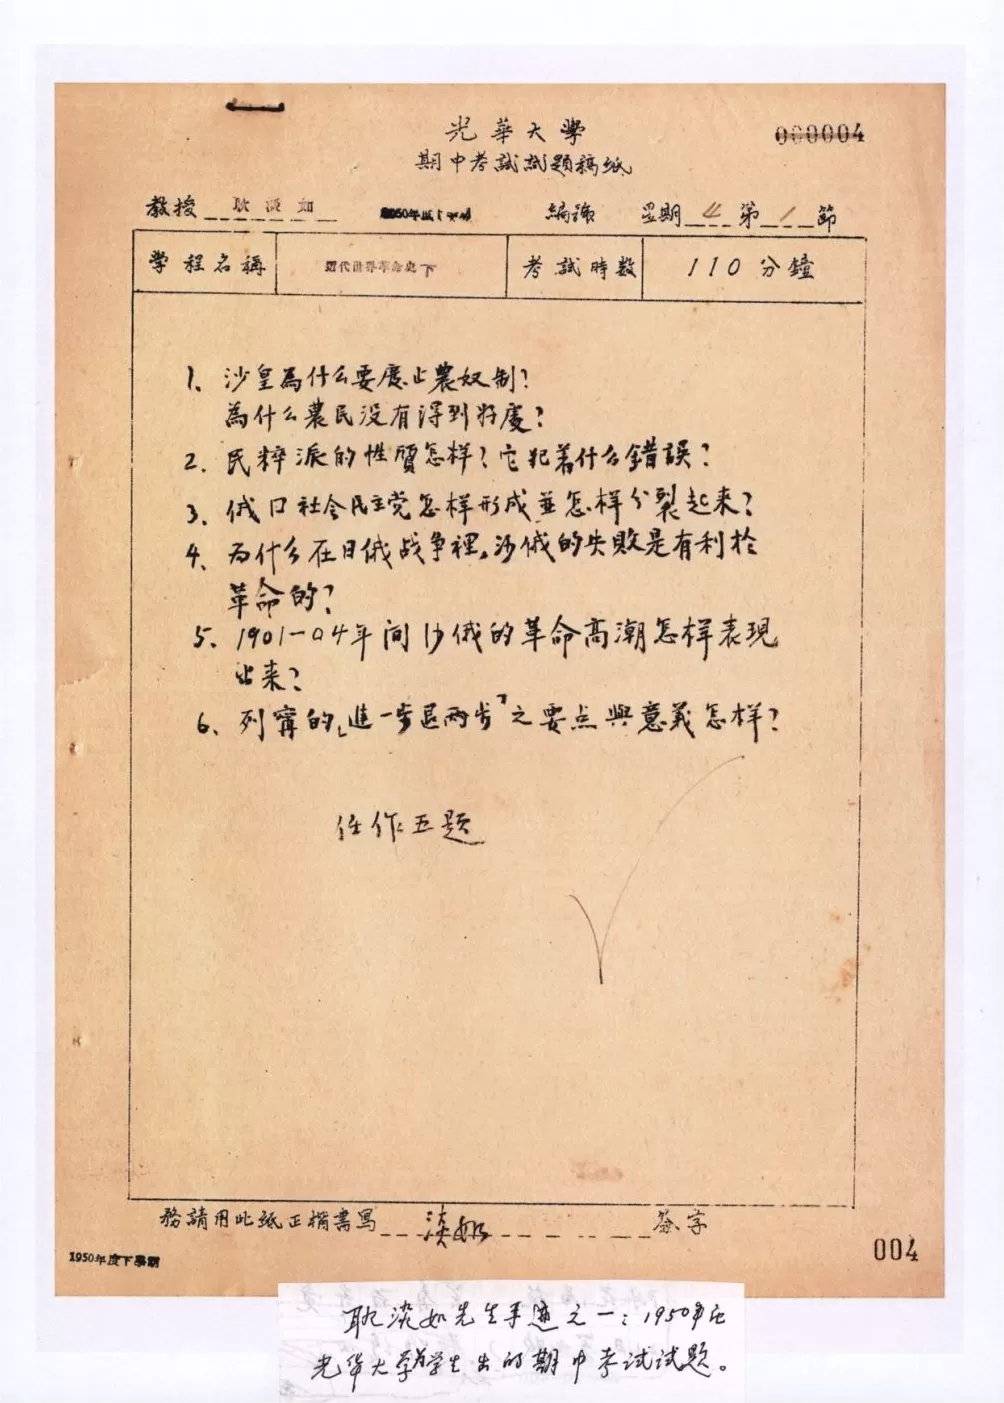 光華大學
000004
期中考試試題稿紙
教授 耿淡如 1950年度 編號 星期 4 第 1 節
學程名稱 近代世界革命史下 考試時数 110分鐘
1、沙皇為什么要廢止農奴制？
為什么農民没有得到好處？
2、民粹派的性質怎样？它犯着什么錯誤？
3、俄囗社会民主党怎样形成並怎样分裂起来？
4、为什么在日俄战争裡，沙俄的失敗是有利於
革命的？
5、1901—04年间沙俄的革命高潮怎样表現
出来？
6、列寧的「進一步退两步」之要点與意義怎样？
任作五题
務請用此紙正楷書寫 淡如 簽字
1950年度下學期
004
耿淡如先生手迹之一：1950年在
光华大学为学生出的期中考试试题。